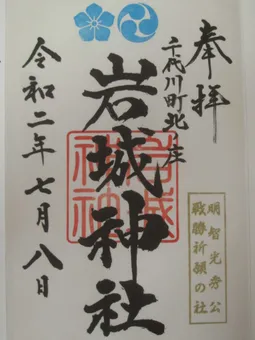 奉拝
千代川町北ノ庄
岩城神社
令和二年七月八日
明智光秀公
戦勝祈願の社
岩城神社